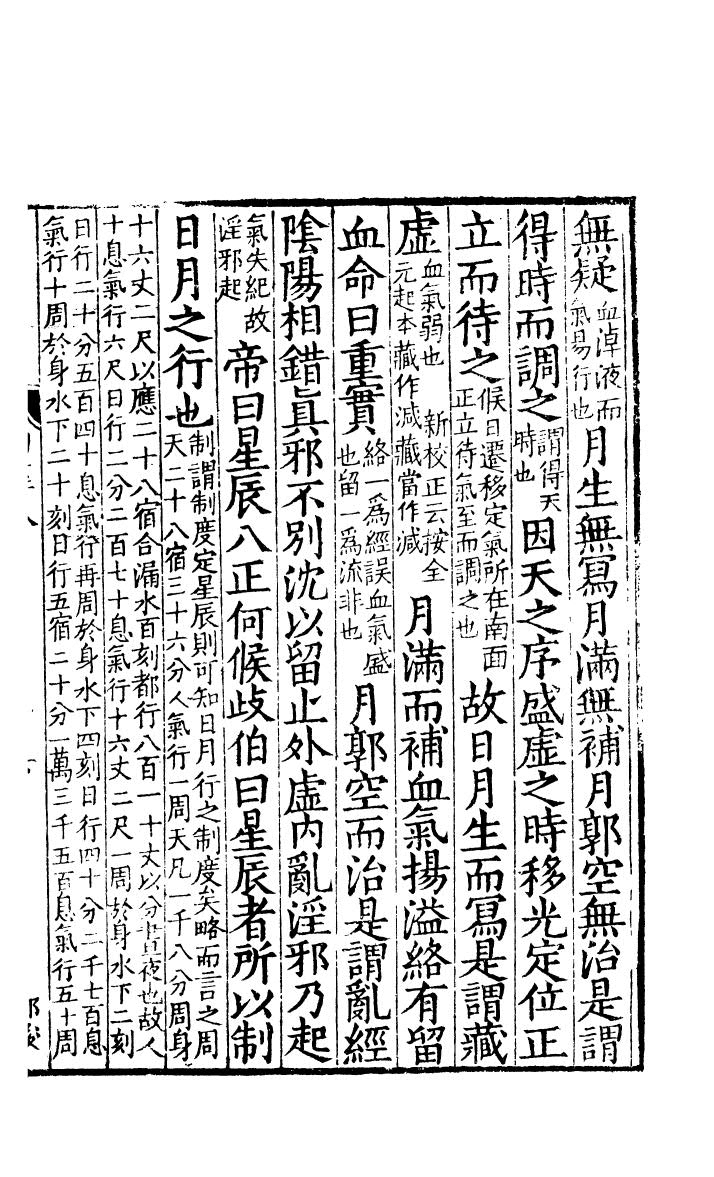 無疑血淖液而氣易行也月生無寫月滿無補月郭空無治是謂
得時而調之謂得天時也因天之序盛虛之時移光定位正
立而待之候日遷移定氣所在南面正立待氣至而調之也故日月生而寫是謂藏
虛血氣弱也 新校正云按全元起本藏作減藏當作減月滿而補血氣揚溢絡有留
血命曰重實絡一爲經誤血氣盛也留一爲流非也月郭空而治是謂亂經
陰陽相錯眞邪不別沈以留止外虛內亂淫邪乃起
氣失紀故淫邪起帝曰星辰八正何候歧伯曰星辰者所以制
日月之行也制謂制度定星辰則可知日月行之制度矣略而言之周天二十八宿三十六分人氣行一周天凡一千八分周身
十六丈二尺以應二十八宿合漏水百刻都行八百一十丈以分晝夜也故人
十息氣行六尺日行二分二百七十息氣行十六丈二尺一周於身水下二刻
日行二十分五百四十息氣行再周於身水下四刻日行四十分二千七百息
氣行十周於身水下二十刻日行五宿二十分一萬三千五百息氣行五十周